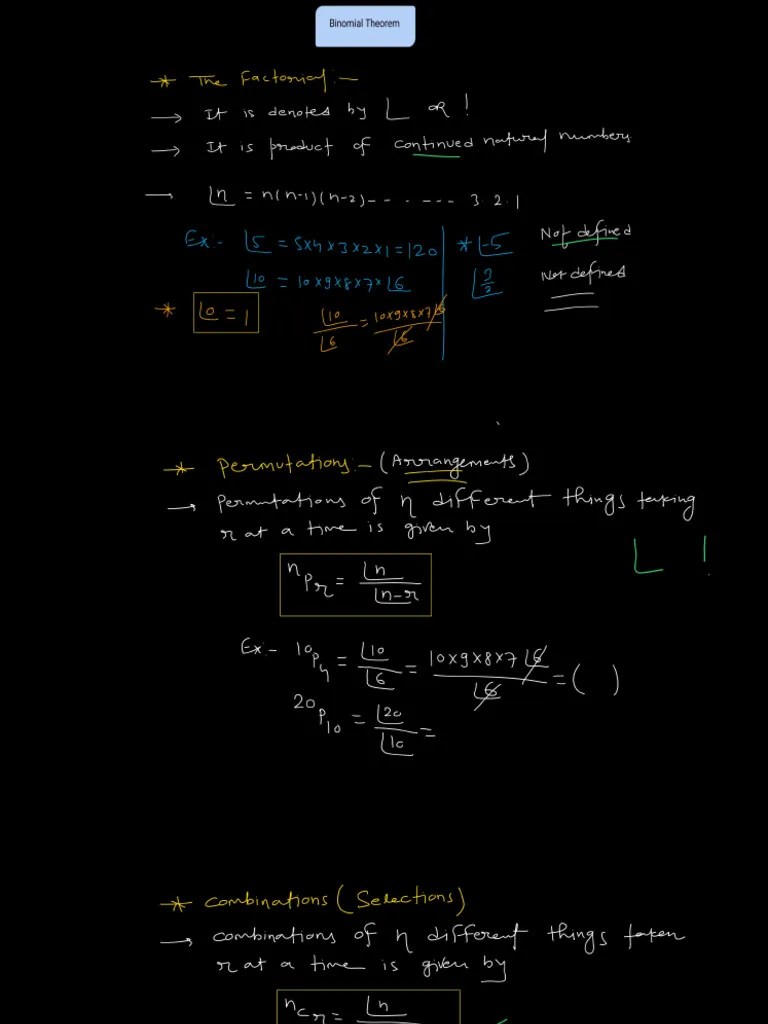 Binomial Theorem
* The Factorial:-
→ It is denotes by ∟ or !
→ It is product of continued natural numbers
→ ∟n = n(n-1)(n-2)-- - ---- 3.2.1
Ex:- ∟5 = 5x4x3x2x1=120
* ∟-5 Not defined
∟10 = 10x9x8x7x∟6
∟3/2 Not defined
* ∟0 = 1
∟10/∟6 = 10x9x8x7∟6/∟6
* Permutations:- (Arrangements)
→ permutations of n different things taking
r at a time is given by
∟ !
nPr = ∟n/∟n-r
Ex:- 10P4 = ∟10/∟6 = 10x9x8x7∟6/∟6 = ( )
20P10 = ∟20/∟10 =
* Combinations (Selections)
→ combinations of n different things taken
r at a time is given by
nCr = ∟n